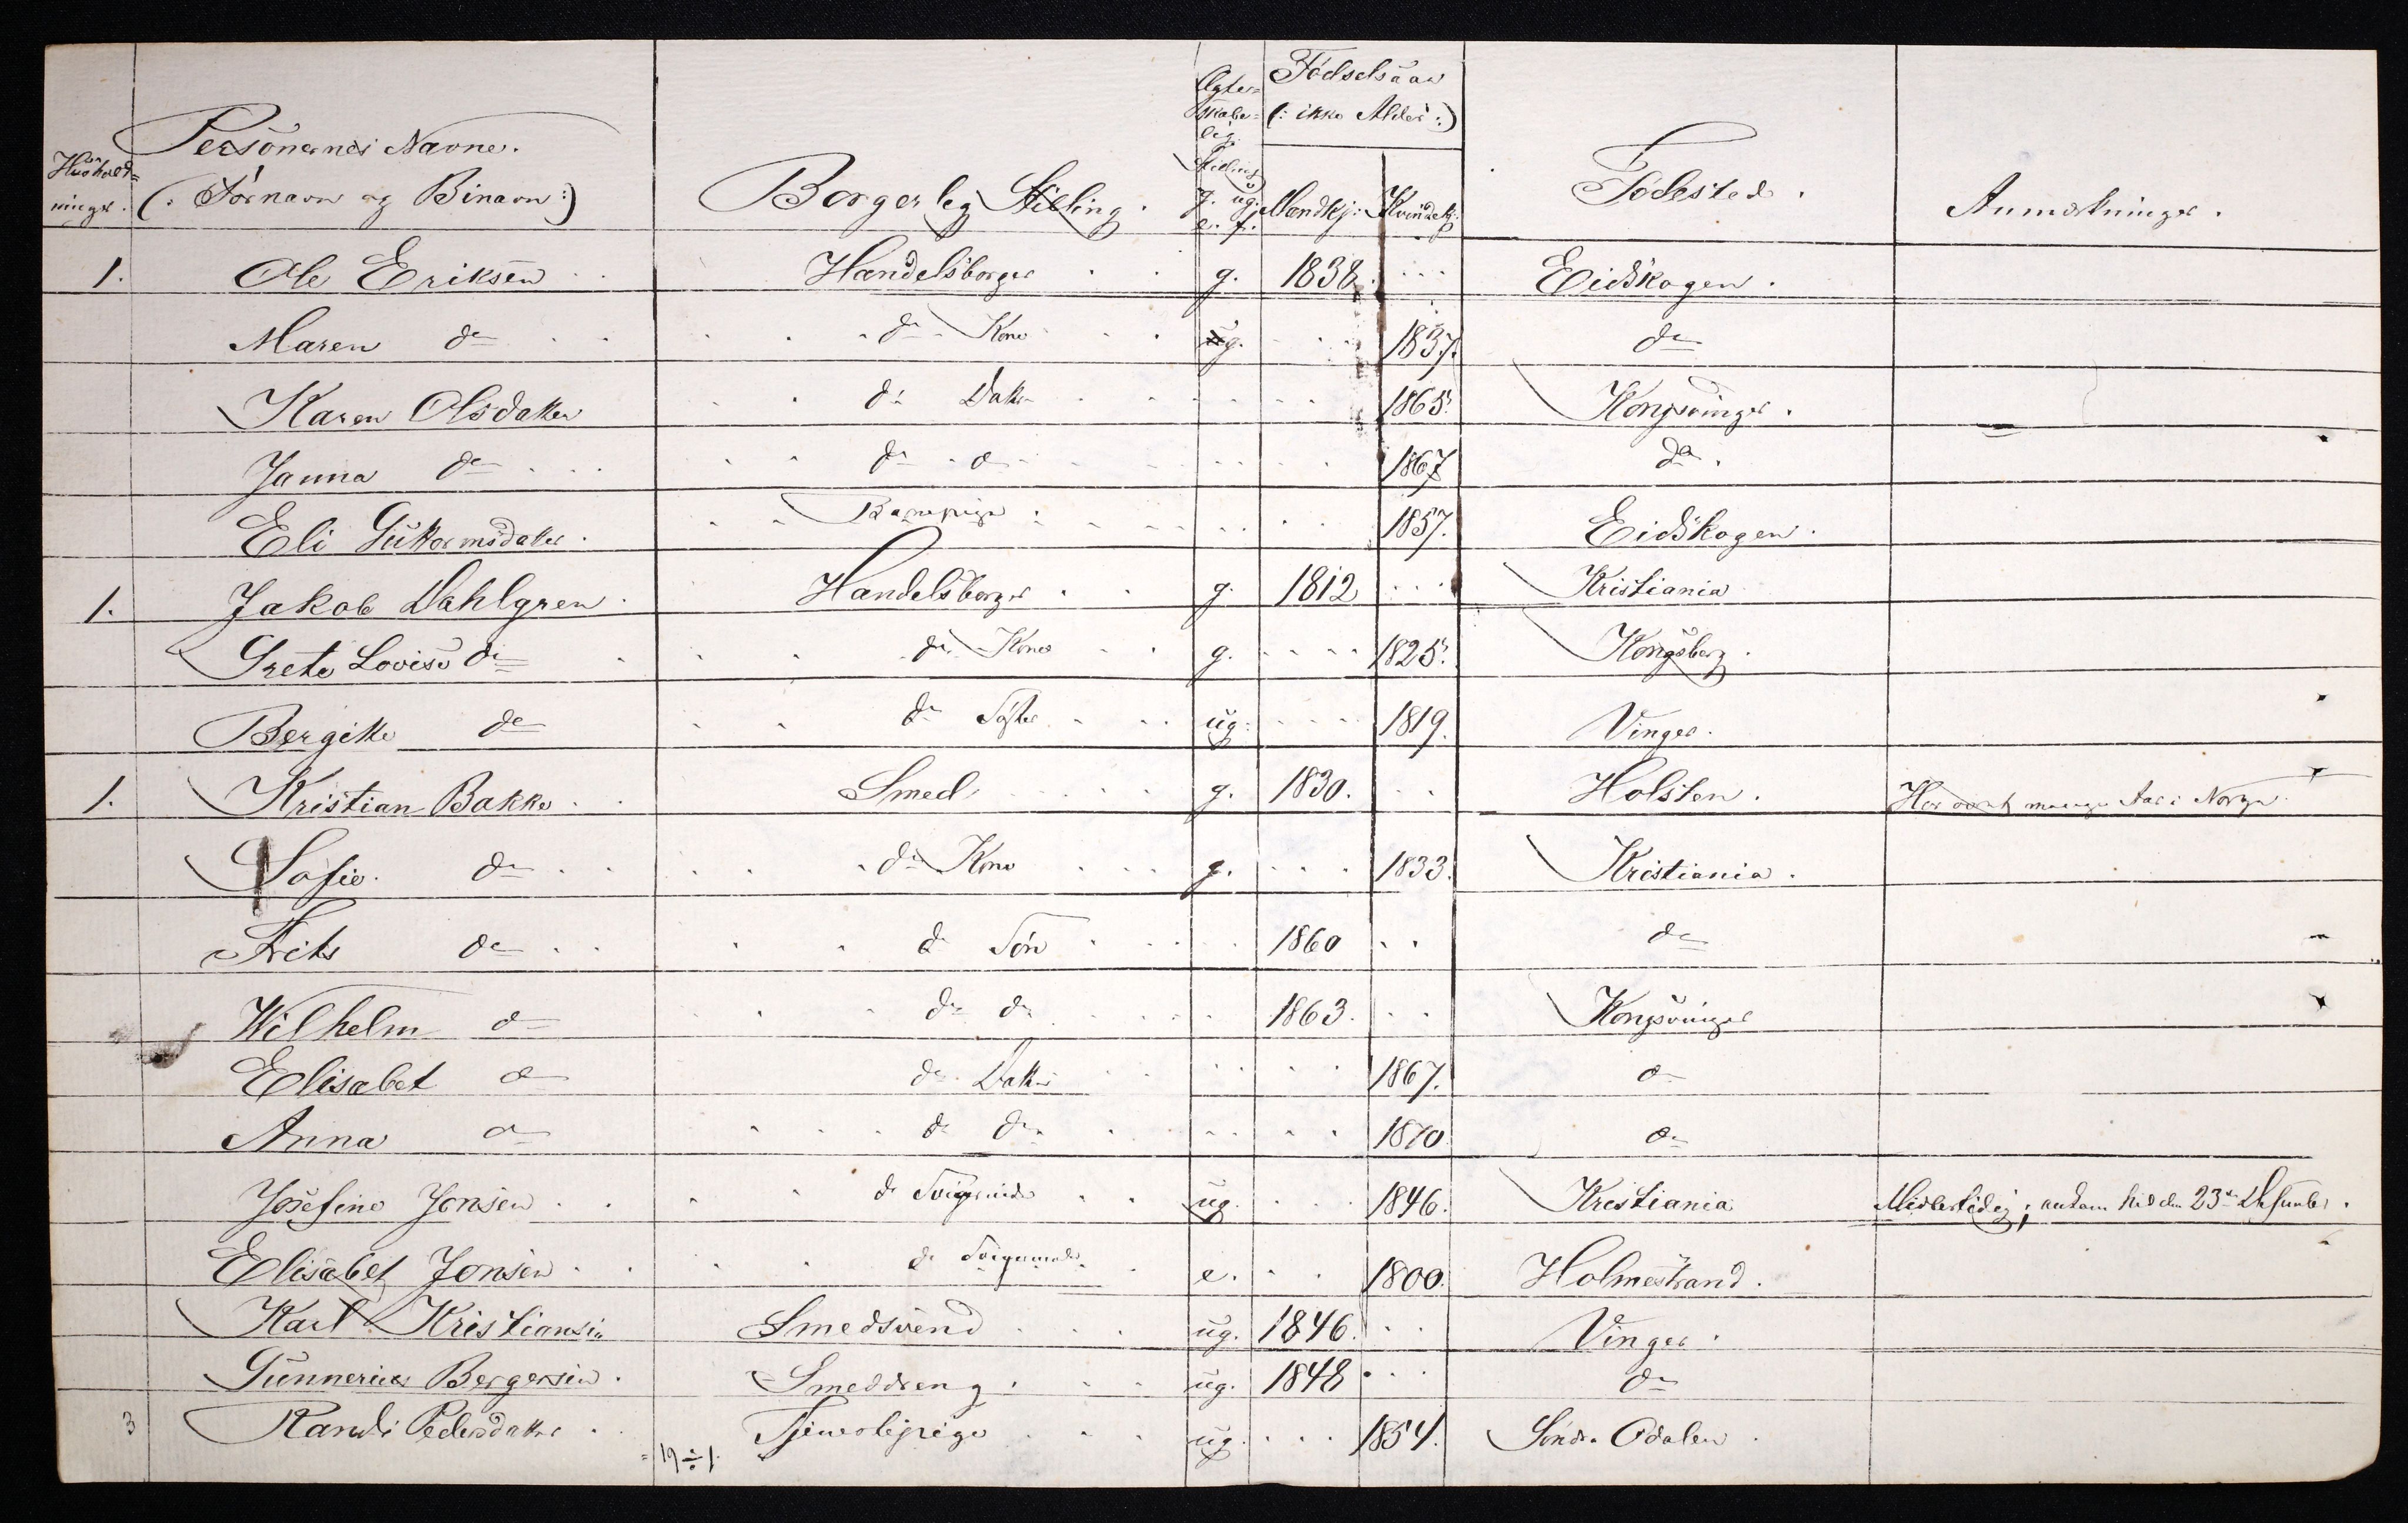 Hushold= ninger. Personernes Navne. (: Fornavn og Binavn :) Borgerleg Stilling. Ægte= skabe= leg Stilling g. ug. e. f. Födselsaar (: ikke Alder :) Mandkj: Kvindekj: Födested. Anmærkninger.
1. Ole Eriksen Handelsborger g. 1838. Eidskogen.
Maren do do Kone g. 1837. do
Karen Olsdatter do Datter 1865. Kongsvinger.
Janna do do do 1867 do.
Eli Guttormsdatter. Barnepige 1857. Eidskogen.
1. Jakob Dahlgren Handelsborger g. 1812 Kristiania
Grete Lovise do do Kone g. 1825. Kongsberg.
Bergitte do do Söster ug. 1819. Vinger.
1. Kristian Bakke Smed g. 1830. Holsten. Har været mange Aar i Norge.
Sofie do do Kone g. 1833. Kristiania.
Frits do do Sön 1860 do
Wilhelm do do do 1863. Kongsvinger
Elisabet do do Datter 1867. do
Anna do do do 1870 do
Josefine Jonsen do Svigerinde ug. 1846. Kristiania Midlertidig; kom hid den 23de Desember.
Elisabet Jonsen do Svigermoder e. 1800. Holmestrand.
Karl Kristiansen Smedsvend ug. 1846. Vinger.
Gunnerius Bergersen. Smeddreng. ug. 1848 do
3 Randi Pedersdatter Tjenestepige ug. 1854. Söndre Odalen
= 19 ÷ 1.